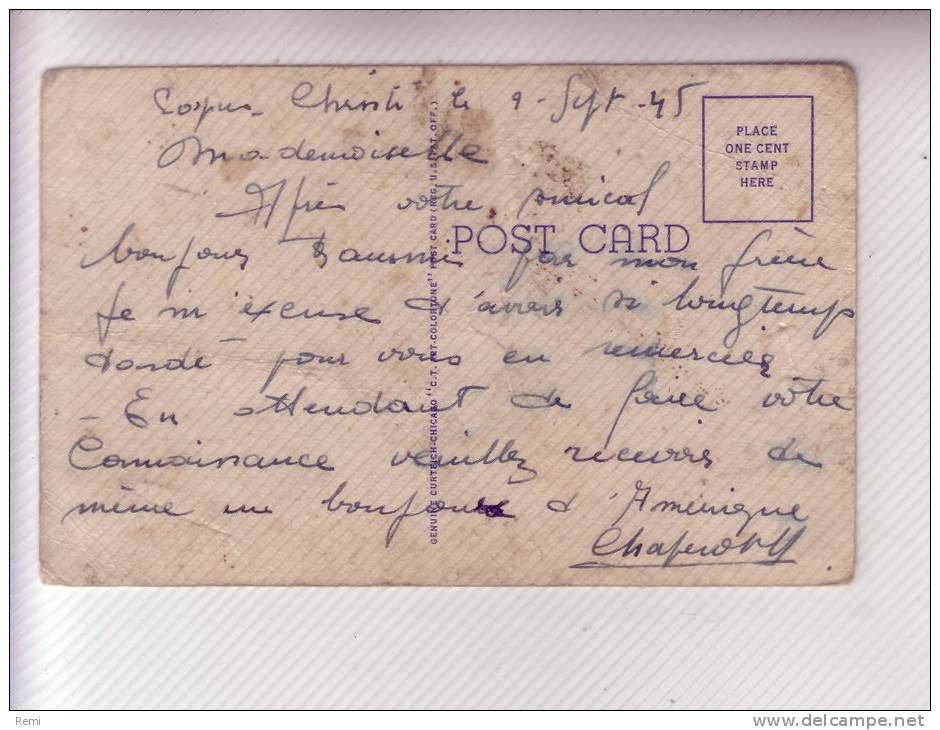 Corpus Christi le 9 - Sept - 45
Mademoiselle
Après votre amical
bonjour transmis par mon frère
Je m'excuse d'avoir si longtemp
tardé pour vous en remercier
- En attendant de faire votre
Connaissance veuillez recevoir de
même un bonjour d'Amérique
PLACE
ONE CENT
STAMP
HERE
POST CARD
GENUINE CURTEICH-CHICAGO "C.T. ART-COLORTONE" POST CARD (REG. U.S. PAT. OFF.)
Remi
www.delcampe.net